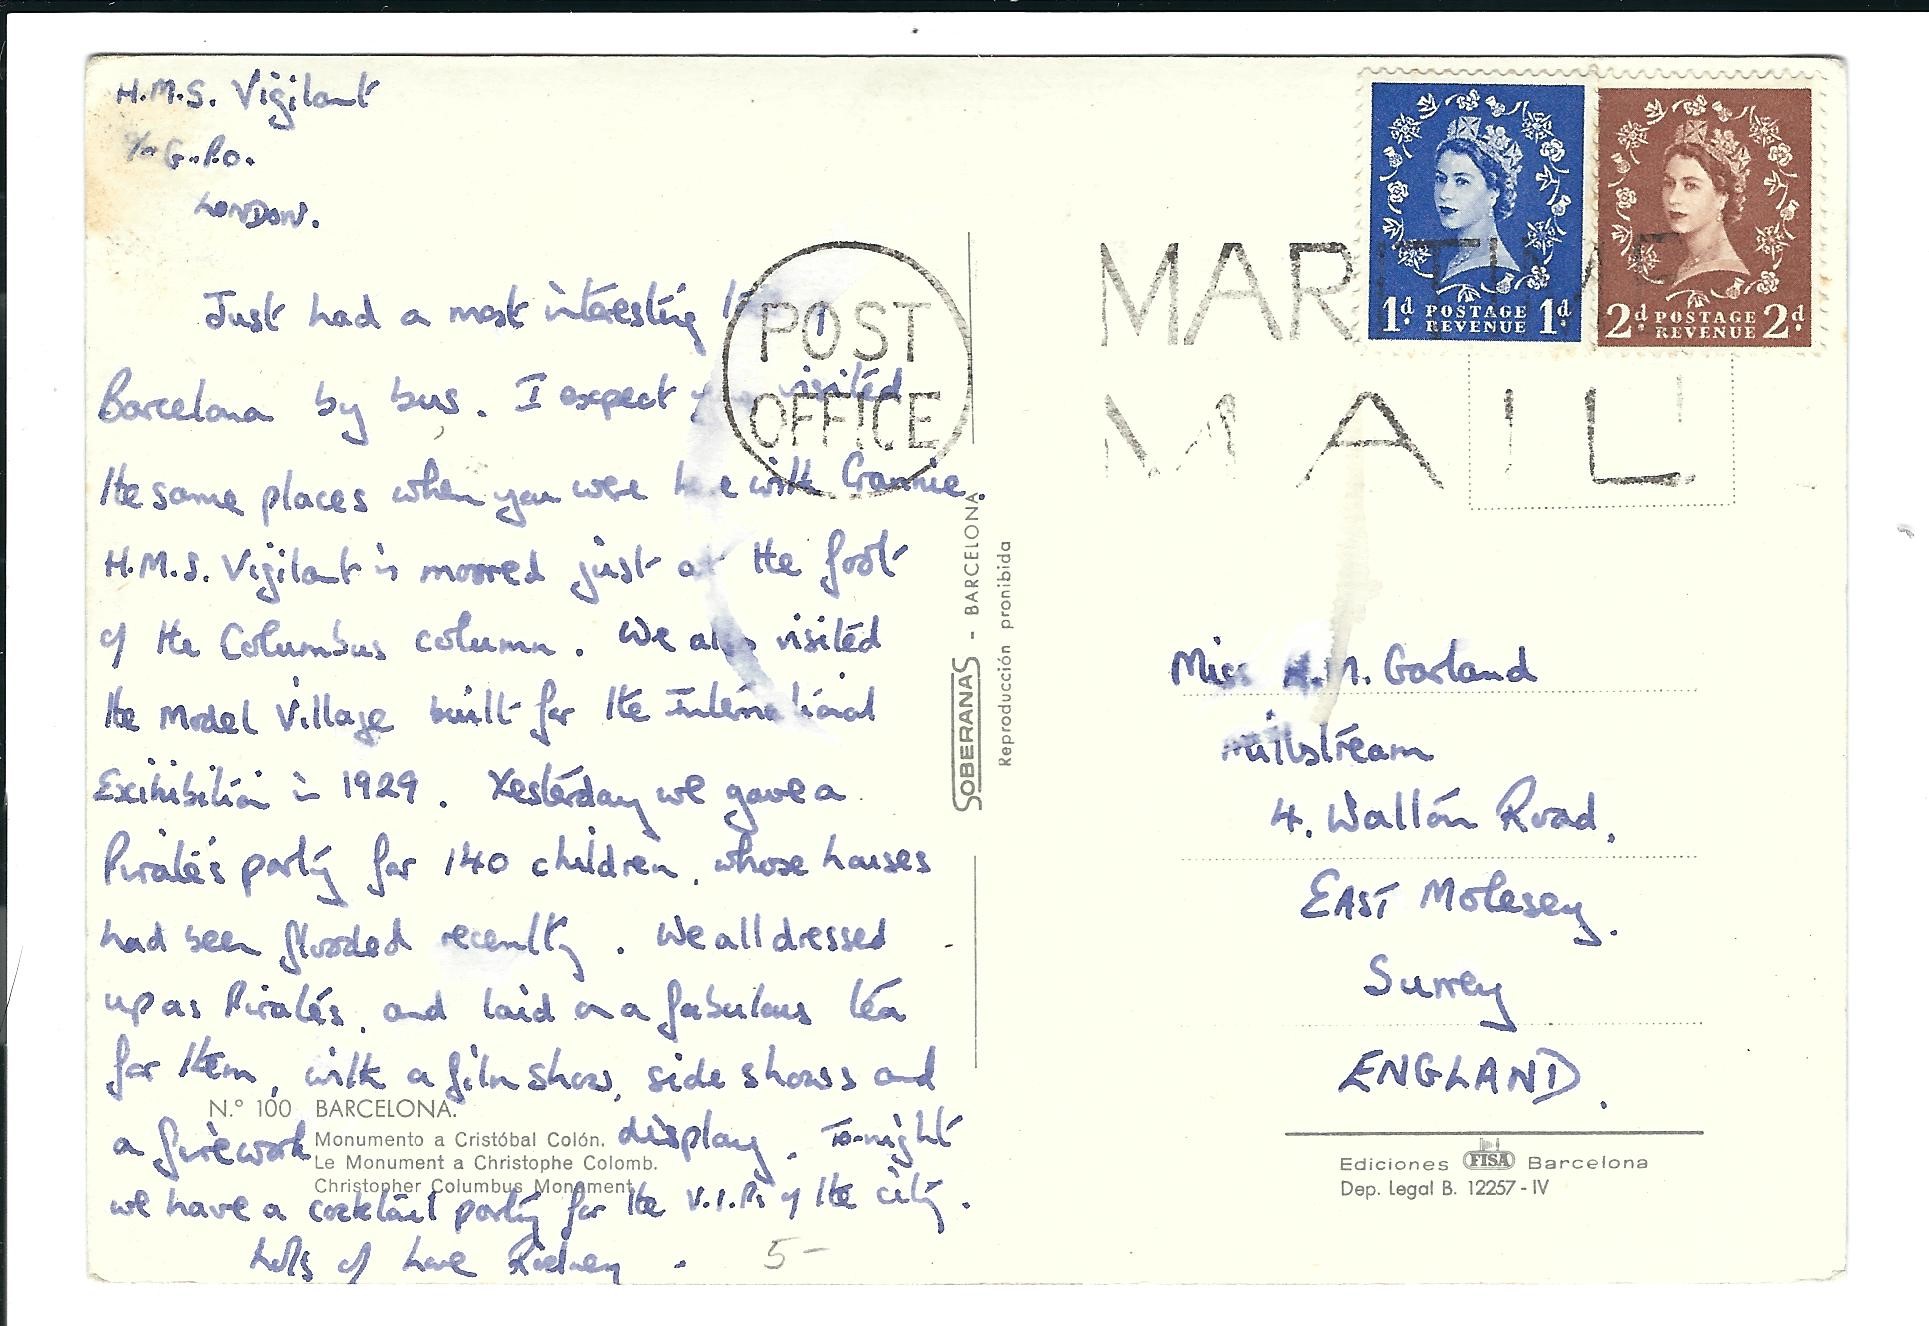 H.M.S. Vigilant
c/o G.P.O.
LONDON.
Just had a most interesting
Barcelona by bus. I expect you visited
the same places when you were here with Grannie.
H.M.S. Vigilant is moored just at the foot
of the Columbus column. We also visited
the Model Village built for the International
Exihibition in 1929. Yesterday we gave a
Pirate's party for 140 children, whose houses
had been flooded recently. We all dressed
up as Pirates, and laid on a fabulous tea
for them, with a film show, side shows and
a firework display. To-night
we have a cocktail party for the V.I.Ps of the city.
Lots of Love Rodney.
5-
N.º 100 BARCELONA.
Monumento a Cristóbal Colón.
Le Monument a Christophe Colomb.
Christopher Columbus Monument.
POST
OFFICE
SOBERANAS - BARCELONA
Reproducción prohibida
MARITIME
MAIL
1d. POSTAGE REVENUE 1d.
2d. POSTAGE REVENUE 2d.
Miss A.M. Garland
Millstream
4. Walton Road,
EAST Molesey.
Surrey
ENGLAND.
Ediciones FISA Barcelona
Dep. Legal B. 12257 - IV